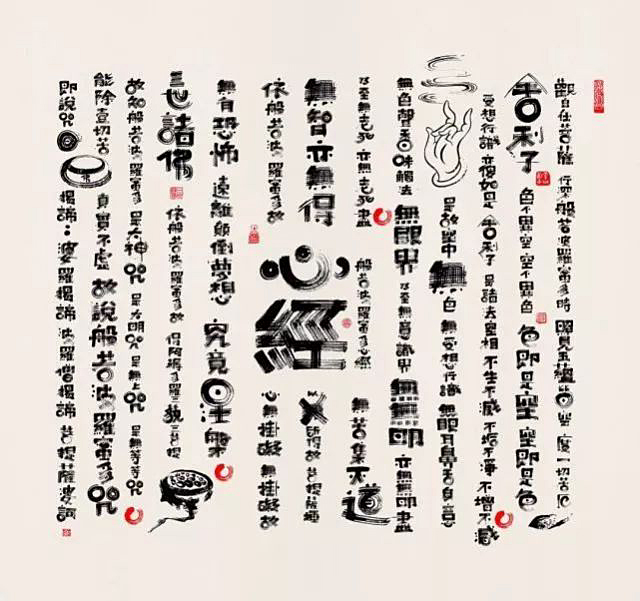 觀自在菩薩 行深般若波羅蜜多時 照見五蘊皆空 度一切苦厄
舍利子 色不異空 空不異色 色即是空 空即是色
受想行識 亦復如是 舍利子 是諸法空相 不生不滅 不垢不淨 不增不減
是故空中無色 無受想行識 無眼耳鼻舌身意
無色聲香味觸法 無眼界 乃至無意識界 無無明 亦無無明盡
乃至無老死 亦無老死盡
無苦集灭道
無智亦無得
以所得故 菩提薩埵
般若波羅蜜多心經
心經
依般若波羅蜜多故
心無掛礙 無掛礙故
無有恐怖 遠離顛倒夢想 究竟涅槃
三世諸佛 依般若波羅蜜多故 得阿耨多羅三藐三菩提
故知般若波羅蜜多 是大神咒 是大明咒 是無上咒 是無等等咒
能除壹切苦 真實不虛 故說般若波羅蜜多咒
即說咒曰 揭諦：婆羅揭諦 波羅僧揭諦 菩提薩婆訶